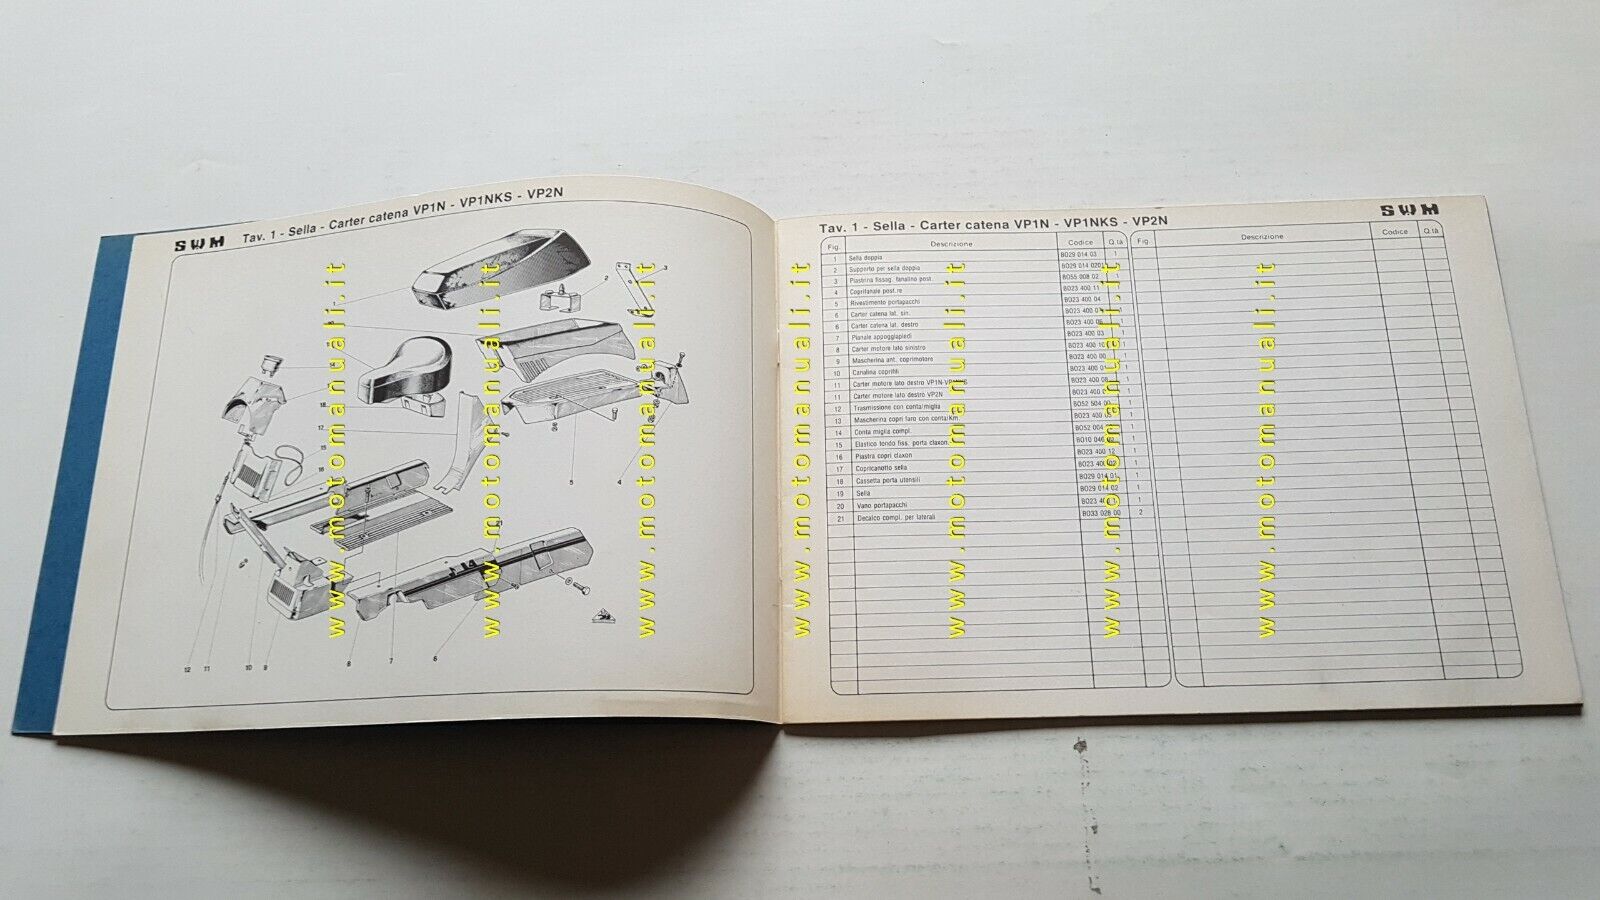 SWM Tav. 1 - Sella - Carter catena VP1N - VP1NKS - VP2N
1
2
3
12
15
16
18
5
4
21
12 11 10 9 8 7 6
www.motomanuali.it
www.motomanuali.it
www.motomanuali.it
Tav. 1 - Sella - Carter catena VP1N - VP1NKS - VP2N SWM
Fig. Descrizione Codice Q.tà Fig. Descrizione Codice Q.tà
1 Sella doppia BO29 014 03 1
2 Supporto per sella doppia BO29 014 0201 1
3 Piastrina fissag. fanalino post. BO55 008 02 1
4 Coprifanale post.re BO23 400 11 1
5 Rivestimento portapacchi BO23 400 04 1
6 Carter catena lat. sin. BO23 400 1
6 Carter catena lat. destro BO23 400 1
7 Pianale appoggiapiedi BO23 400 03 1
8 Carter motore lato sinistro BO23 400 10 1
9 Mascherina ant. coprimotore BO23 400 00 1
10 Canalina coprifili BO23 400 1
11 Carter motore lato destro VP1N-VP1NKS BO23 400 1
11 Carter motore lato destro VP2N BO23 400 1
12 Trasmissione con conta/miglia BO52 504 00 1
13 Mascherina copri faro con conta/Km. BO23 400 1
14 Conta miglia compl. BO52 004 1
15 Elastico tondo fiss. porta claxon. BO10 046 1
16 Piastra copri claxon BO23 400 12 1
17 Copricanotto sella BO23 400 02 1
18 Cassetta porta utensili BO29 014 01 1
19 Sella BO29 014 02 1
20 Vano portapacchi BO23 1
21 Decalco compl. per laterali BO33 028 00 2
www.motomanuali.it
www.motomanuali.it
www.motomanuali.it
www.motomanuali.it